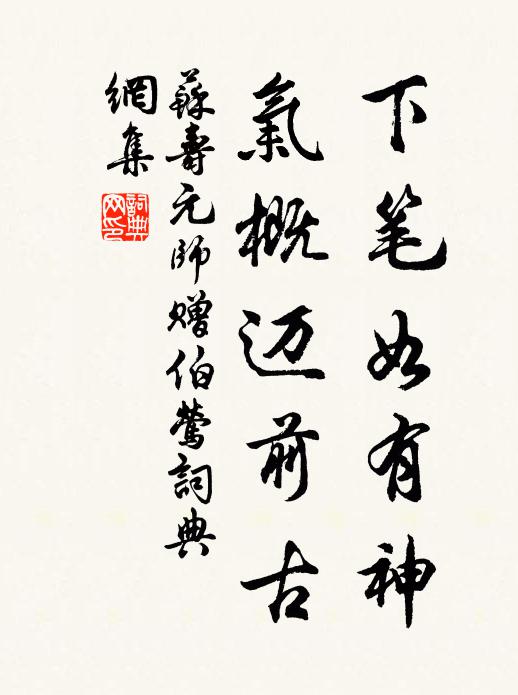 下笔如有神
氣概迈前古
蘇壽元師贈伯鶯詞典
網集
詞典
网印